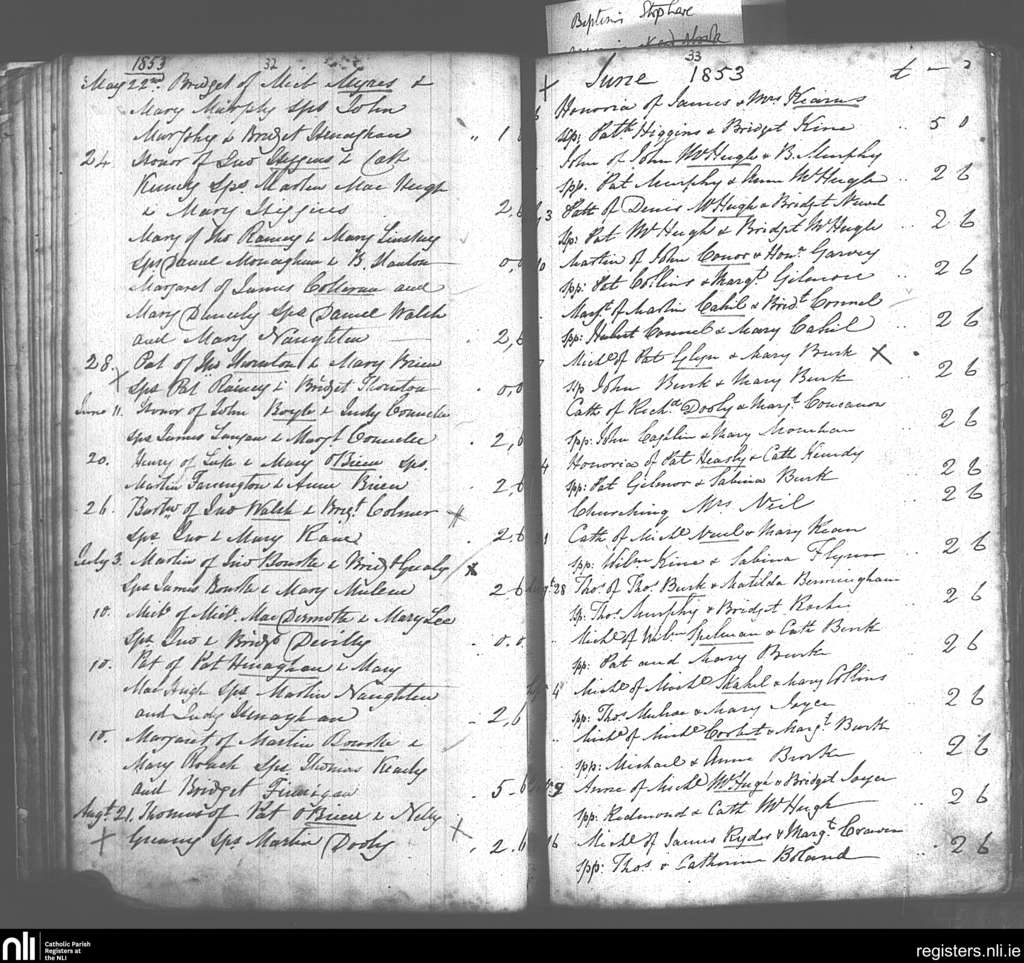 Baptisms Shop
1853
32
May 22nd Bridget of Mich Myres &
Mary Murphy sps John
Murphy & Bridget Henaghan " 1 6
24 Honor of Jno Higgins & Cath
Kenny Sps. Martin Mac Hugh
& Mary Higgins 2, 6
Mary of Tho Rainey & Mary Linskey
Sps Daniel Monaghan & B. Hanlon 0, 0
Margaret of James Colleran and
Mary Sps Daniel Walsh
and Mary Naughten 2, 6
28. Pat of Tho Thornton & Mary Brien
X Sps Pat Rainey & Bridget Thornton 0, 0
June 11. Honor of John Boyle & Judy
Sps James & Margt 2, 6
20. Henry of Luke & Mary O'Brien Sps.
Martin Farrington & Anne Brien 2, 6
26. Bartw of Jno Walsh & Bridt Colmer
Sps Jno & Mary Kane 2 6
July 3. Martin of Jno Bourke & Bridt Grealy X
Sps James Bourke & Mary 2 6
10. Mich of Mich. MacDermott & Mary Lee
Sps. Jno & Bridgt Devilly 0. 0
10. Pat of Pat Henaghan & Mary
MacHugh Sps. Martin Naughten
and Judy Henaghan 2, 6
10. Margaret of Martin Bourke &
Mary Roland Sps Thomas Kealy
and Bridget Finnegan 5 - 6
Augt. 21. Thomas of Pat O'Brien & Nelly
X Sps Martin Dooly X 2. 6
33
X June 1853 £ -
Honoria of James & Mrs Kearns
sp: Patk Higgins & Bridget Kine 5 0
John of John McHugh & B. Murphy
spp: Pat Murphy & Ann McHugh 2 6
3 Patk of Denis McHugh & Bridget
sp: Pat McHugh & Bridget McHugh 2 6
10 Martin of John Conor & Honr Garvey
spp: Pat Collins & Margt Gilmore 2 6
Margt of Martin Cahil & Bridt Connel
spp: Connel & Mary Cahil 2 6
Michl of Pat Glyn & Mary Burk X
sp John Burk & Mary Burk 2 6
Cath of Richd Dooly & Margt Concanon
spp: John & Mary Monahan 2 6
4 Honoria of Pat Heasly & Cath Kenedy
spp: Pat Gilmor & Sabina Burk 2 6
Churching Mrs Neil 2 6
Cath of Michl & Mary Kean
spp: Willm Kine & Sabina Flynn 2 6
Augt. 28 Thos of Thos Burk & Matilda Bermingham
sp: Thos Murphy & Bridget Roche 2 6
Michl of Willm Spelman & Cath Burk
spp: Pat and Mary Burke 2 6
4 Michl of Michl Skahil & Mary Collins
spp: Thos & Mary Joyce 2 6
Michl of Michl Corbet & Margt Burk
spp: Michael & Anne Burke 2 6
Anne of Michl McHugh & Bridget Joyce
spp: Redmond & Cath McHugh 2 6
16 Michl of James Ryder & Margt Craven
spp: Thos & Catherine Boland 2 6
nli
Catholic Parish
Registers at
the NLI
registers.nli.ie